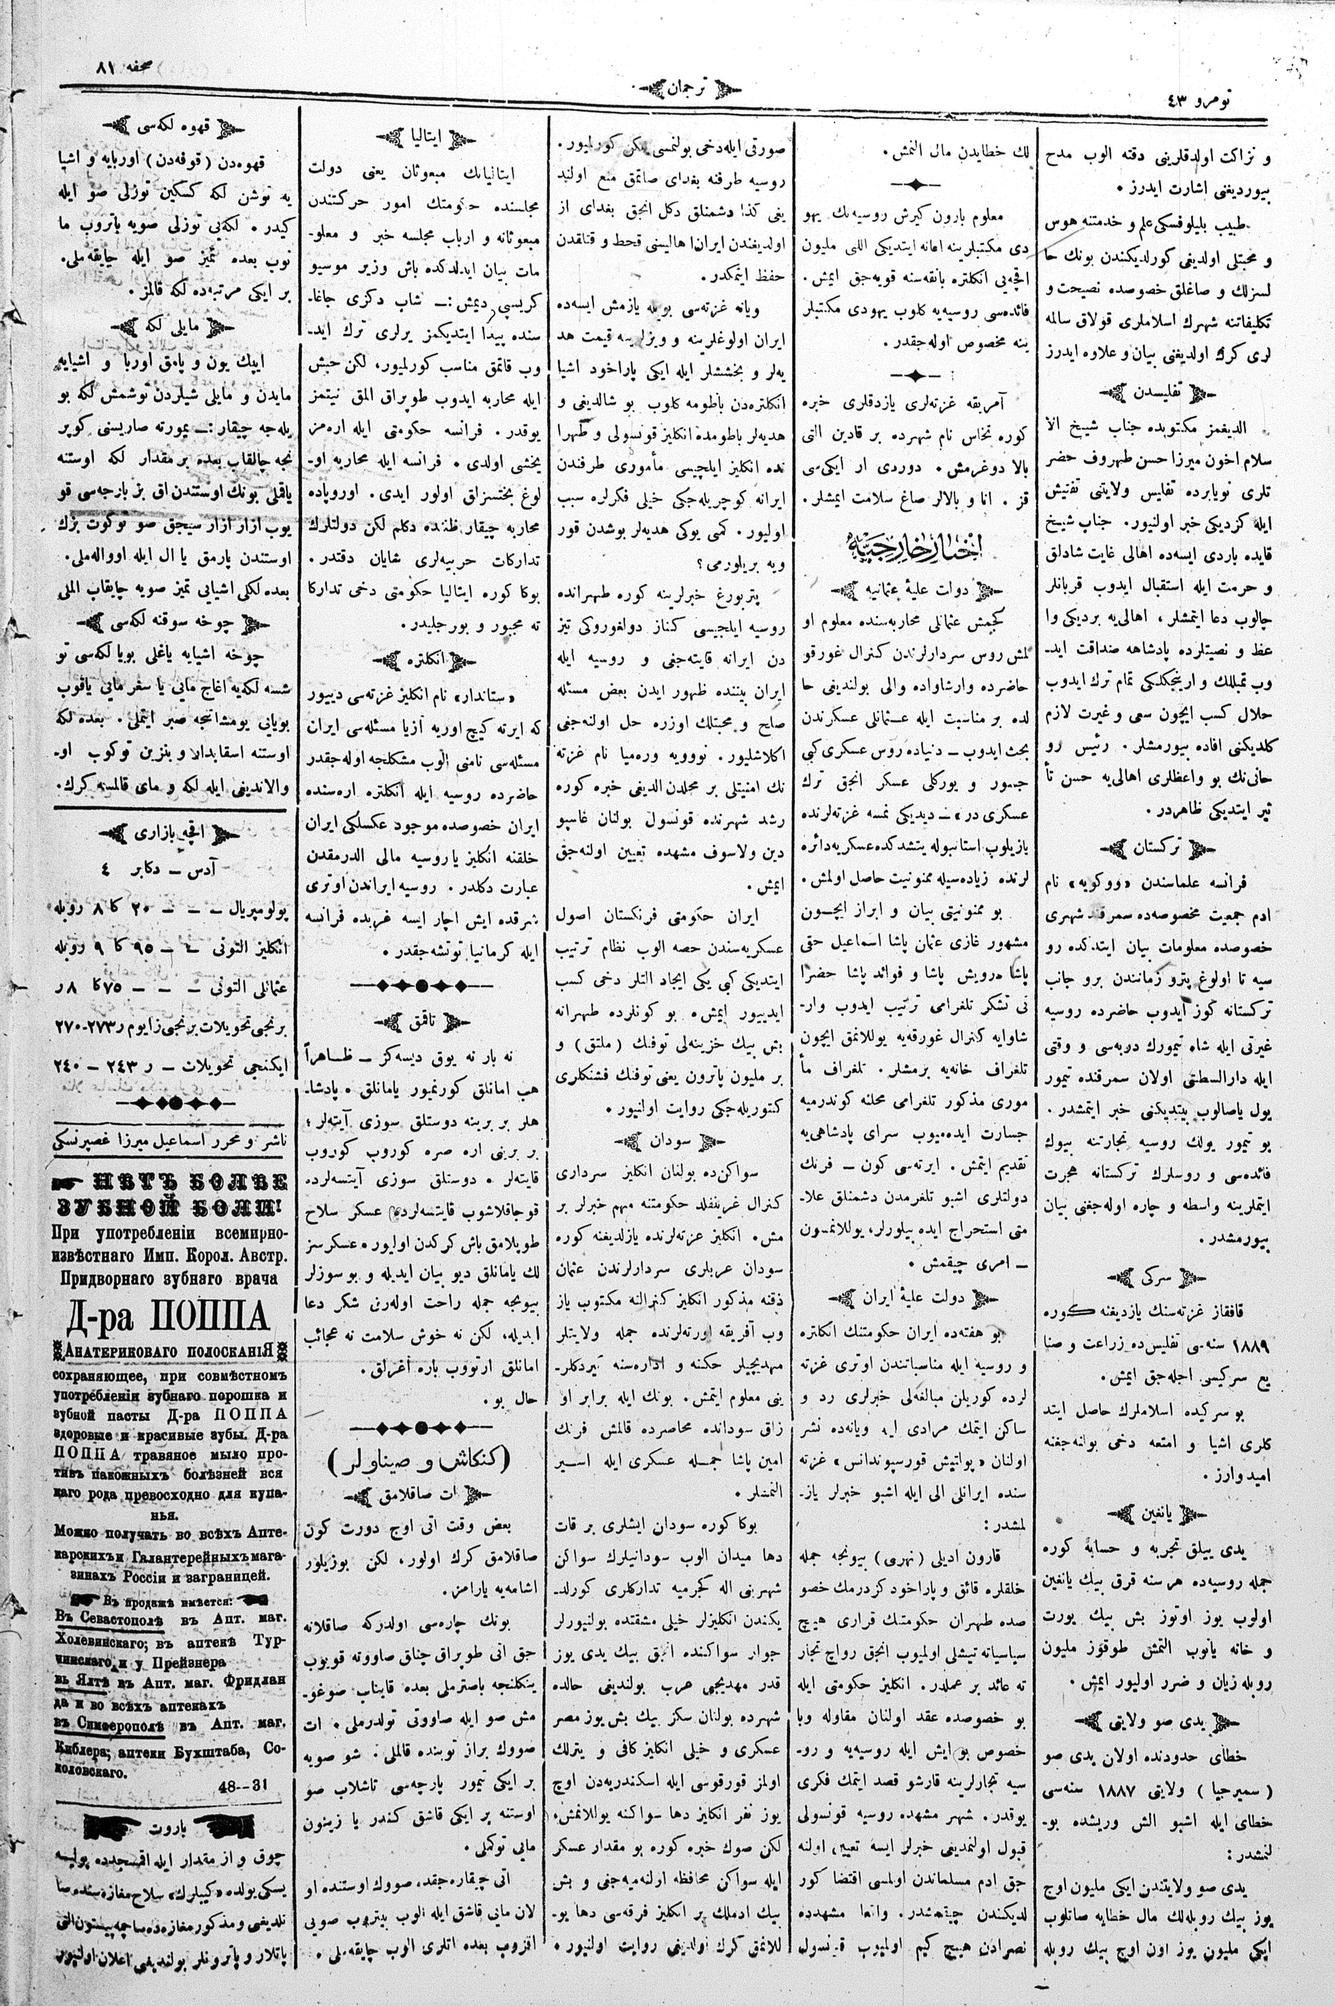 نومرو ٤٣
ترجمان
صحفه ٨١
و نزاکت اولدقلرینی دقته الوب مدح
بیوردیغنی اشارت ایدرز .
طبیب بلیلوفسکی علم و خدمتنه هوس
و محبتلی اولدیغی کورلدیکندن بونك حا
لسزلك و صاغلق خصوصده نصیحت و
تکلیفاتنه شهرك اسلاملری قولاق سالمه
لری کرك اولدیغنی بیان و علاوه ایدرز
تفلیسدن
الدیغمز مکتوبده جناب شیخ الا
سلام اخون میرزا حسن طهروف حضر
تلری نویابرده تفلیس ولایتنی تفتیش
ایله کردیکی خبر اولنیور. جناب شیخ
قایده باردی ایسه ده اهالی غایت شادلق
و حرمت ایله استقبال ایدوب قربانلر
چالوب دعا ایتمشلر ، اهالی یه بردیکی وا
عظ و نصیتلرده پادشاهه صداقت اید‍ـ
وب تمبللك و ارینجکلکی تمام ترك ایدوب
حلال کسب ایچون سعی و غیرت لازم
کلدیکنی افاده بیورمشلر. رئیس رو
حانی نك بو واعظلری اهالی یه حسن تأ
ثیر ایتدیکی ظاهردر.
ترکستان
فرانسه علماسندن «ووکویه» نام
ادم جمعیت مخصوصه ده سمرقند شهری
خصوصده معلومات بیان ایتدکده رو
سیه تا اولوغ پترو زمانندن برو جانب
ترکستانه کوز ایدوب حاضرده روسیه
غیرتی ایله شاه تیمورك دربه سی و وقتی
ایله دارالسطنتی اولان سمرقنده تیمور
یول یاصالوب بیتدیکنی خبر ایتمشدر.
بو تیمور یولك روسیه تجارتنه بیوك
فائده سی و روسلرك ترکستانه هجرت
ایتملرینه واسطه و چاره اوله جغنی بیان
بیورمشدر.
سرکی
قافقاز غزته سنك یازدیغنه کوره
١٨٨٩ سنه سی تفلیس ده زراعت و صنا
یع سرکیسی اچله جق ایمش.
بو سرکیده اسلاملرك حاصل ایتد
کلری اشیا و امتعه دخی بولنه جغنه
امیدوارز.
یانغین
یدی ییلق تجربه و حسابه کوره
جمله روسیه ده هر سنه قرق بیك یانغین
اولوب یوز اوتوز بش بیك یورت
و خانه یانوب التمش طوقوز ملیون
روبله زیان و ضرر اولیور ایمش.
یدی صو ولایتی
خطای حدودنده اولان یدی صو
(سمیرچیا) ولایتی ١٨٨٧ سنه سی
خطای ایله اشبو الش وریشده بو‍ـ
لنمشدر:
یدی صو ولایتندن ایکی ملیون اوچ
یوز بیك روبله لك مال خطایه صاتلوب
ایکی ملیون یوز اون اوچ بیك روبله
لك خطایدن مال النمش.
معلوم بارون کیرش روسیه نك یهو
دی مکتبلرینه اعانه ایتدیکی اللی ملیون
اقچه یی انکلتره بانقه سنه قویه جق ایمش.
فائده سی روسیه یه کلوب یهودی مکتبلر
ینه مخصوص اوله جقدر.
آمریقه غزته لری یازدقلری خبره
کوره نخاس نام شهرده بر قادین التی
بالا دوغرمش. دوردی ار ایکی سی
قز. انا و بالالر صاغ سلامت ایمشلر.
اخبار خارجیه
دولت علیهٔ عثمانیه
کچمش عثمانلی محاربه سنده معلوم او
لمش روس سردارلرندن کنرال غورقو
حاضرده وارشاواده والی بولندیغی حا
لده بر مناسبت ایله عثمانلی عسکرندن
بحث ایدوب ــ دنیاده روس عسکری کبی
جسور و یورکلی عسکر انجق ترك
عسکری در» ــ دیدیکی نمسه غزته لرنده
یازیلوب استانبوله یتشدکده عسکریه دائره
لرنده زیاده سیله ممنونیت حاصل اولمش.
بو ممنونیتی بیان و ابراز ایچــون
مشهور غازی عثمان پاشا اسماعیل حقی
پاشا درویش پاشا و فوائد پاشا حضرا
تی تشکر تلغرامی ترتیب ایدوب وار‍ـ
شاوایه کنرال غورقه یه یوللانمق ایچون
تلغراف خانه یه برمشلر. تلغراف مأ
موری مذکور تلغرامی محلنه کوندرمیه
جسارت ایده میوب سرای پادشاهی یه
تقدیم ایتمش. ایرته سی کون ــ فرنك
دولتلری اشبو تلغرمدن دشمنلق علا‍ـ
متی استخراج ایده بیلورلر، یوللانمــون
ــ امری چیقمش.
دولت علیهٔ ایران
بو هفته ده ایران حکومتنك انکلتره
و روسیه ایله مناسباتندن اوتری غزته
لرده کوریلن مبالغه لی خبرلری رد و
ساکن ایتمك مرادی ایله ویانه ده نشر
اولنان «پولتیش قورسپوندانس» غزته
سنده ایرانلی الی ایله اشبو خبرلر یاز‍ـ
لمشدر:
قارون ادیلی (نهری) بیونجه جمله
خلقلره قائق و پاراخود کزدرمك خصو
صده طهران حکومتنك قراری هیچ
سیاسیاته تیشلی اولمیوب انجق رواج تجار
ته عائد بر عملدر. انکلیز حکومتی ایله
بو خصوصده عقد اولنان مقاوله ویا
خصوص بو ایش ایله روسیه یه و رو‍ـ
سیه تجارلرینه قارشو قصد ایتمك فکری
یوقدر. شهر مشهده روسیه قونسولی
قبول اولنمدیغی خبرلر ایسه تعیین اولنه
جق ادم مسلماندن اولمسی اقتضا کور
لدیکندن چیقمشدر. واقعا مشهدده
نصرادن هیچ کیم اولمیوب قونسول
صورتی ایله دخی بولنمسی ممکن کورلمیور.
روسیه طرفنه بغدای صاتمق منع اولند
یغی کذا دشمنلق دکل انجق بغدای از
اولدیغندن ایران اهالیسنی قحط و قتلقدن
حفظ ایتمکدر.
ویانه غزته سی بویله یازمش ایسه ده
ایران اولوغلرینه و ویزارینه قیمت هد
یه لر و بخششلر ایله ایکی پاراخود اشیا
انکلتره دن باطومه کلوب بو شالدیغی و
هدیه لر باطومده انکلیز قونسولی و طهرا
نده انکلیز ایلچیسی مأموری طرفندن
ایرانه کوچریله جکی خیلی فکرلره سبب
اولیور. کمی یوکی هدیه لر بوشدن قور
ویه بریلورمی؟
پتربورغ خبرلرینه کوره طهرانده
روسیه ایلچیسی کناز دولغوروکی تیز
دن ایرانه قایته جغی و روسیه ایله
ایران بیننده ظهور ایدن بعض مسئله
صلح و محبتلك اوزره حل اولنه جغی
اکلاشلیور. نوویه وره میا نام غزته
نك امنیتلی بر محلدن الدیغی خبره کوره
رشد شهرنده قونسول بولنان غاسپو
دین ولاسوف مشهده تعیین اولنه جق
ایمش.
ایران حکومتی فرنکستان اصول
عسکریه سندن حصه الوب نظام ترتیب
ایتدیکی کبی یکی ایجاد التلر دخی کسب
ایدییور ایمش. بو کونلرده طهرانه
بتس بیك خزینه لی توفنك (ملتق) و
بر ملیون پاترون یعنی توفنك فشنکلری
کتوریله جکی روایت اولنیور.
سودان
سواکن ده بولنان انکلیز سرداری
کنرال غرینفلد حکومتنه مهم خبرلر بر
مش. انکلیز غزته لرنده یازلدیغنه کوره
سودان عربلری سردارلرندن عثمان
ذقنه مذکور انکلیز کنرالنه مکتوب یاز
وب آفریقه اورته لرنده جمله ولایتلر
مهدیچیلر حکمنه و اداره سنه کیردکلر‍ـ
ینی معلوم ایتمش. بونك ایله برابر او
زاق سودانده محاصرده قالمش فرنك
امین پاشا جمله عسکری ایله اسیر
التمشلر.
بوکا کوره سودان ایشلری بر قات
دها میدان الوب سودانیلرك سواکن
شهرینی اله کچرمیه تدارکلری کورلد‍ـ
یکندن انکلیزلر خیلی مشقتده بولنیورلر
جوار سواکنده انجق بیك یدی یوز
قدر مهدیجی عرب بولندیغی حالده
شهرده بولنان سکز بیك بش یوز مصر
عسکری و خیلی انکلیز کافی و یترلك
اولمز قورقوسی ایله اسکندریه دن اوچ
یوز نفر انکلیز دها سواکنه یوللانمش.
لکن صوك خبره کوره بو مقدار عسکر
ایله سواکن محافظه اولنه میه جغی و بش
بیك ادملك بر انکلیز فرقه سی دها یو‍ـ
للانمق کرك اولدیغی روایت اولنیور.
ایتالیا
ایتالیانك مبعوثان یعنی دولت
مجلسنده حکومتك امور حرکتندن
مبعوثانه و ارباب مجلسه خبر و معلو‍ـ
مات بیان ایدلدکده باش وزیر موسیو
کریسپی دیمش:ــ شاپ دکزی جاغا‍ـ
سنده پیدا ایتدیکمز یرلری ترك اید‍ـ
وب قاتمق مناسب کورلمیور، لکن حبش
ایله محاربه ایدوب طوپراق المق نیتمز
یوقدر. فرانسه حکومتی ایله اره مز
یخشی اولدی. فرانسه ایله محاربه او‍ـ
لوغ بختسزلق اولور ایدی. اوروپاده
محاربه چیقار ظننده دکلم لکن دولتلرك
تدارکات حربیه لری شایان دقتدر.
بوکا کوره ایتالیا حکومتی دخی تدارکا
ته مجبور و بورجلیدر.
انکلتره
«ستاندار» نام انکلیز غزته سی دییور
که ایرته کیچ اوریه آزیا مسئله سی ایران
مسئله سی نامنی الوب مشکلنجه اوله جقدر
حاضرده روسیه ایله انکلتره اره سنده
ایران خصوصده موجود عکسلکی ایران
خلقنه انکلیز یا روسیه مالی الدرمقدن
عبارت دکلدر. روسیه ایراندن اوتری
شرقده ایش اچار ایسه غربده فرانسه
ایله کرمانیا توتشه جقدر.
تاقمق
نه بار نه یوق دیسه کز ــ ظــاهراً
هب امانلق کورنمیور یامانلق. پادشا‍ـ
هلر بر برینه دوستلق سوزی آیته لر؛
بر برینی اره صره کوروب کوروب
قایته لر. دوستلق سوزی آیتسه لرده
قوجاقلاشوب قایتسه لرده عسکر سلاح
طوپلامق باش کرکدن اولیور. عسکر سز
لك یامانلق دیو بیان ایدیله و بو سوزلر
بیونجه جمله راحت اوله رق شکر دعا
ایدیله، لکن نه خوش سلامت نه عجائب
امانلق ارتووب باره اغزلق.
حال بو.
(کنکاش و صیناولر)
ات صاقلامق
بعض وقت اتی اوچ دورت کون
صاقلامق کرك اولور، لکن بوزیلور
اشامه یه یارامز.
بونك چاره سی اولدرکه صاقلانه
جق اتی طوپراق چناق صاووته قویوب
ینکلنجه باصترملی بعده قایناب صوغو‍ـ
مش صو ایله صاووتی تولدرملی. ات
صووك براز توبنده قالملی. شو صویه
بر ایکی تیمور پارچه سی تاشلاب صو
اوستنه بر ایکی قاشق کندر یا زیتون
مانی توکملی.
اتی چیقاره جقد، صووك اوستنده او
لان مانی قاشق ایله الوب بیتروب صویی
اقزوب بعده اتلری الوب چایقه ملی.
قهوه لکه سی
قهوه دن (قوفه دن) اوربایه و اشیا
یه توشن لکه کسکین توزلی صو ایله
کیدر. لکه نی توزلی صویه باتروب ما
نوب بعده تمیز صو ایله چایقه ملی.
بر ایکی مرتبه ده لکه قالمز.
مایلی لکه
ایپك یون و پامق اوربا و اشیایه
مایدن و مایلی شیلردن توشمش لکه بو
یله جه چیقار:ــ یمورته صاریسنی کوپر
نجه چالقاب بعده بر مقدار لکه اوستنه
یاقملی بونك اوستندن اق بز پارچه سی قو
یوب ازار ازار سیجق صو توکوب بزك
اوستندن پارمق یا ال ایله اوواله ملی.
بعده لکلی اشیایی تمیز صویه چایقاب الملی
چوخه سوقنه لکه سی
چوخه اشیایه یاغلی بویا لکه سی تو
شسه لکه یه اغاج مانی یا سفر مانی یاقوب
بویایی یومشانجه صبر ایتملی. بعده لکه
اوستنه اسقابدالا و بنزین توکوب او‍ـ
والاندیغی ایله لکه و مای قالمسه کرك.
اقچه بازاری
آدس ــ دکابر ٤
پولومپریال ــ ــ ــ ٢٠ کا ٨ روبله
انکلیز التونی ــ ــ ٩٥ کا ٩ روبله
عثمانلی التونی ــ ــ ــ ٧٥ کا ٨ر
برنجی تحویلات برنجی زایوم ر ٢٧٣-٢٧٠
ایکنجی تحویلات ــ ر ٢٤٣ ــ ٢٤٠
ناشر و محرر اسماعیل میرزا غصپرنسکی
НѢТЪ БОЛѢЕ
ЗУБНОЙ БОЛИ!
При употребленіи всемирно-
извѣстнаго Имп. Корол. Австр.
Придворнаго зубнаго врача
Д-ра ПОППА
АНАТЕРИКОВАГО ПОЛОСКАНІЯ
сохраняющее, при совмѣстномъ
употребленіи зубнаго порошка и
зубной пасты Д-ра ПОППА
здоровые и красивые зубы. Д-ра
ПОППА травяное мыло про-
тивъ накожныхъ болѣзней вся
каго рода превосходно для купа-
нья.
Можно получать во всѣхъ Апте-
карскихъ и Галантерейныхъ мага-
зинахъ Россіи и заграницей.
Въ продажѣ имѣется:
Въ Севастополѣ въ Апт. маг.
Холевинскаго; въ аптекѣ Тур-
чинскаго и у Прейзнера
въ Ялтѣ въ Апт. маг. Фридлан
да и во всѣхъ аптекахъ
въ Симферополѣ въ Апт. маг.
Киблера; аптеки Бухштаба, Со-
коловскаго.
48--31
باروت
چوق و از مقدار ایله اقمسجدده پولیسه
یسکی یولده «کیبلرك» سلاح مغازه سنده صا
تلدیغی و مذکور مغازه ده ساچمه پیستون التی
پاتلار و پاترونلر بولندیغی اعلان اولنیور